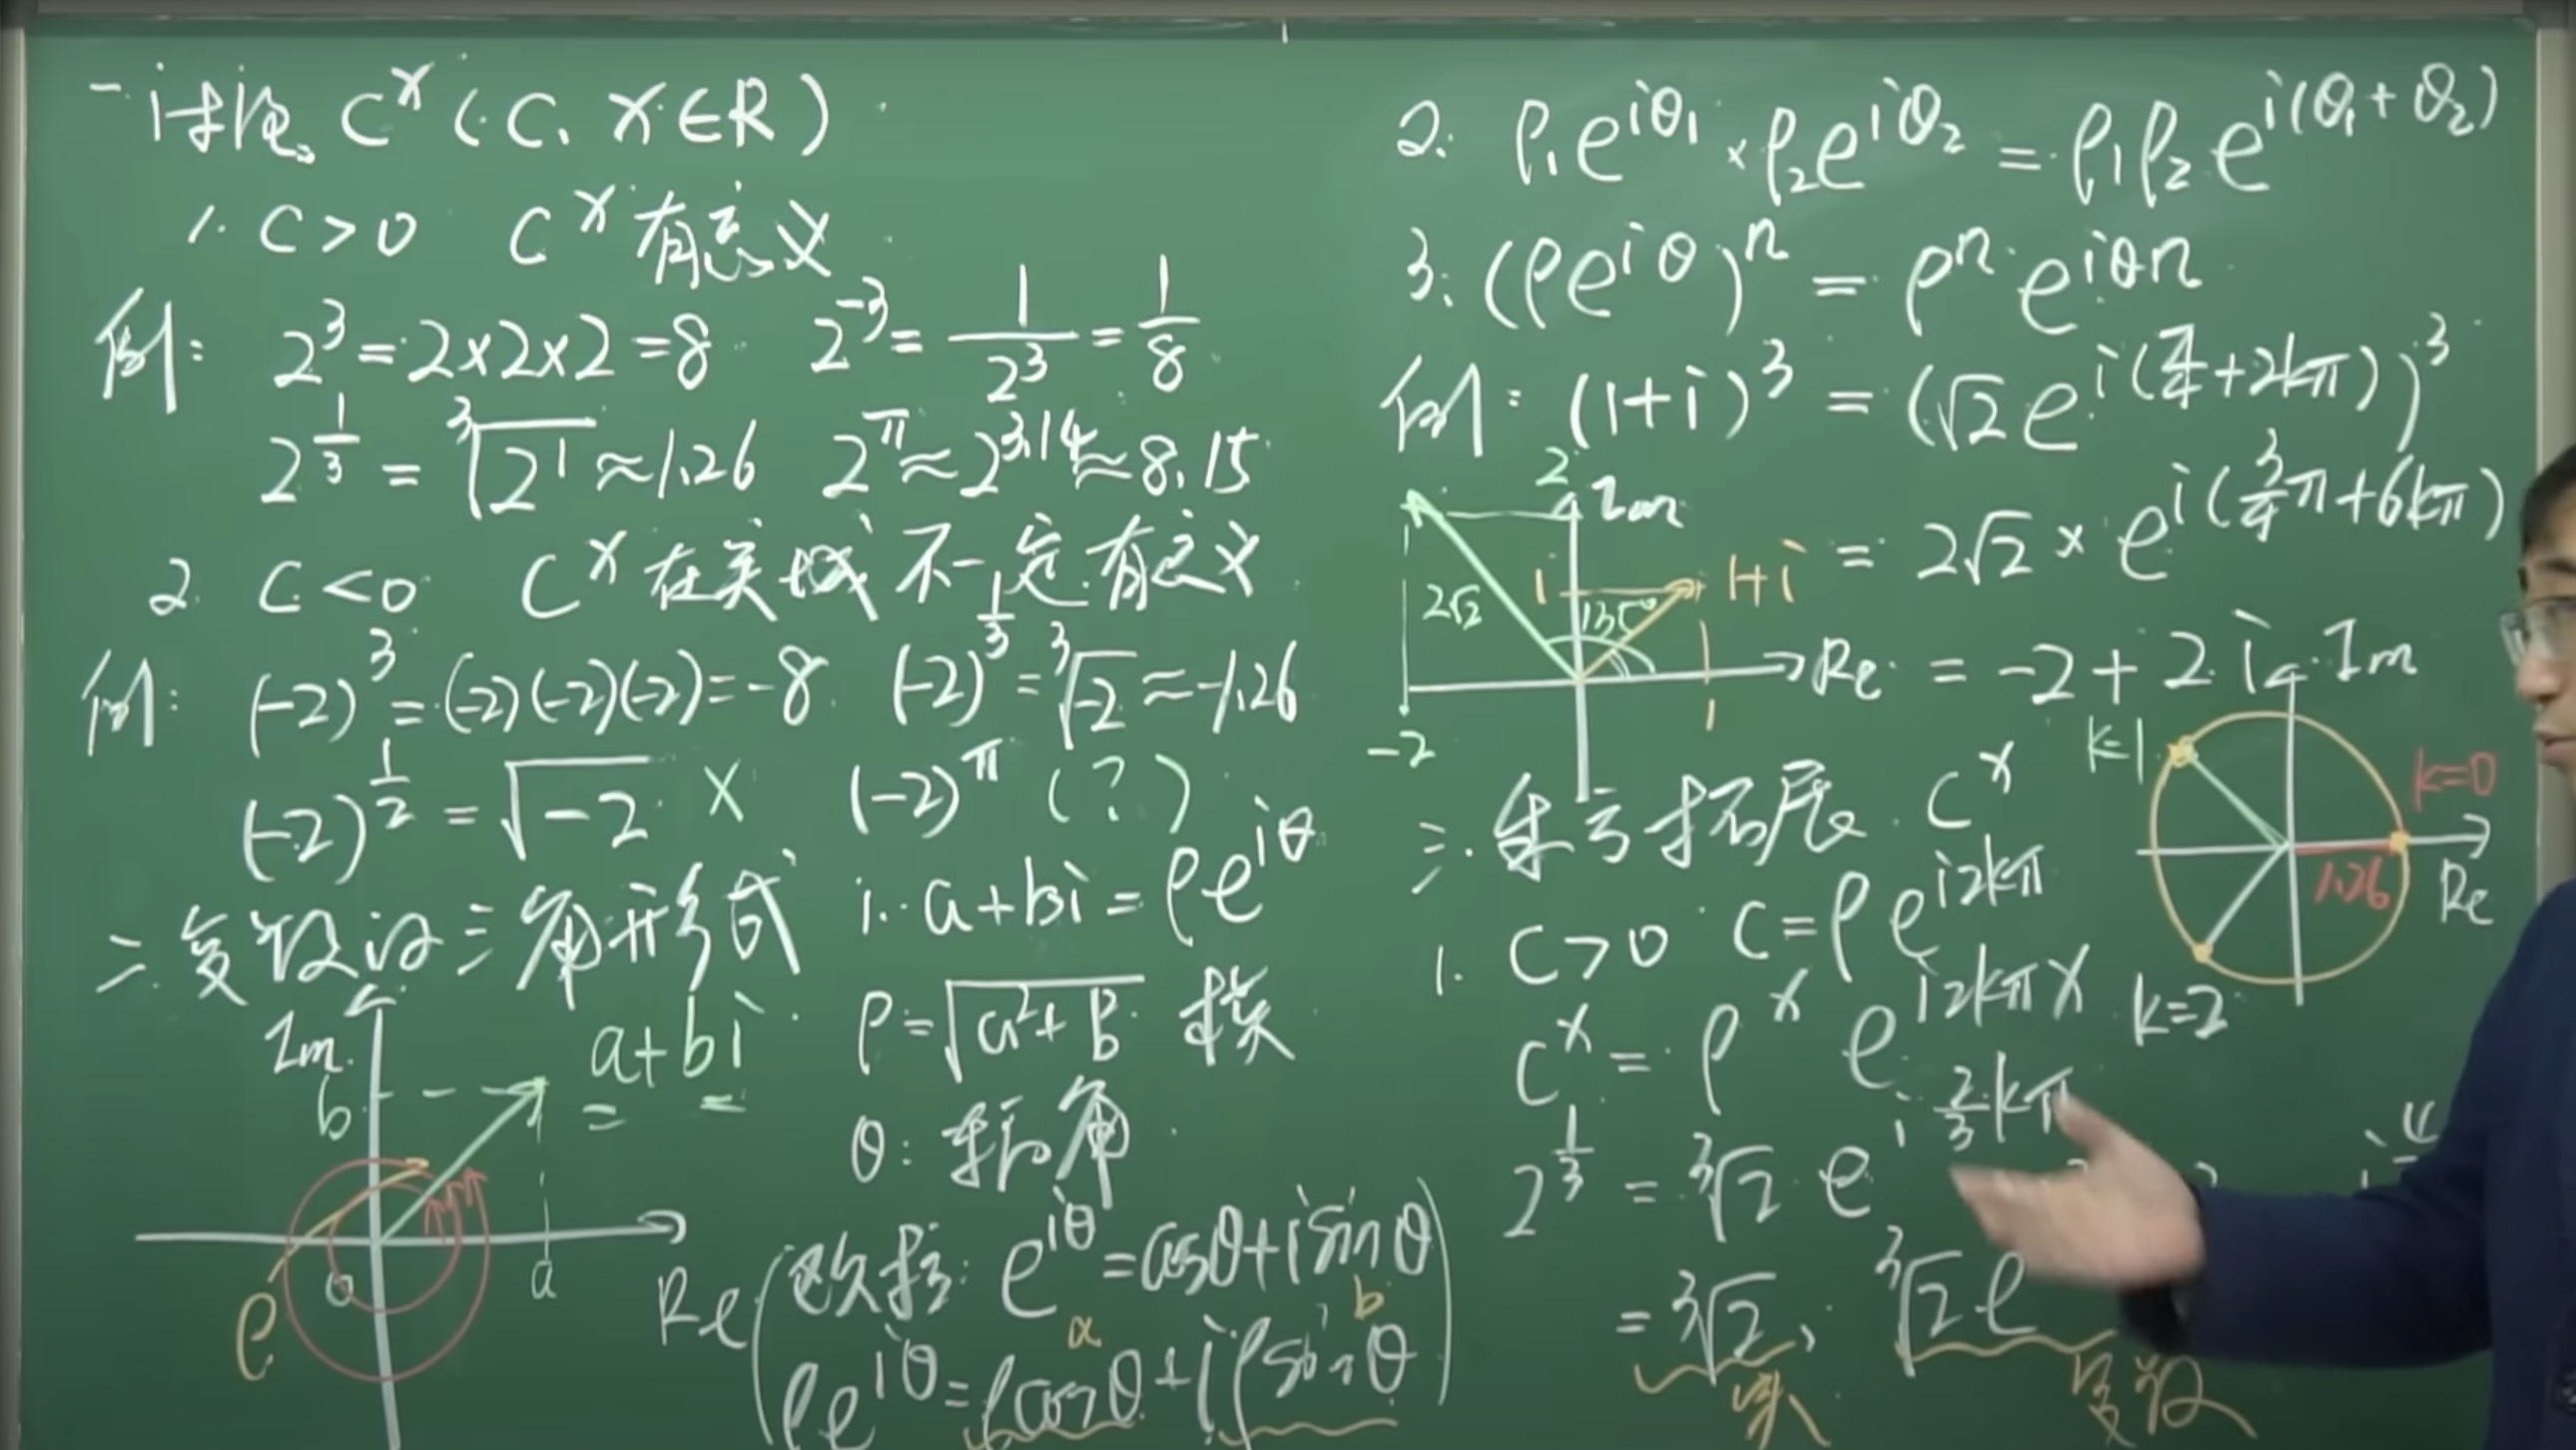 一 讨论 Cˣ (C, x∈R)
1. C>0 Cˣ有意义
例: 2³=2×2×2=8 2⁻³=1/2³=1/8
2^(1/3)=³√2¹≈1.26 2^π≈2^3.14≈8.15
2. C<0 Cˣ在实域不一定有意义
例: (-2)³=(-2)(-2)(-2)=-8 (-2)^(1/3)=³√-2≈-1.26
(-2)^(1/2)=√-2 × (-2)^π (?)
二. 复数的三角形式
1. a+bi=ρe^(iθ)
ρ=√(a²+b²) 模
θ: 辐角
欧拉: e^(iθ)=cosθ+isinθ
a b
ρe^(iθ)=ρcosθ+iρsinθ
Im
b
a+bi
0
a
Re
ρ
2. ρ₁e^(iθ₁)×ρ₂e^(iθ₂)=ρ₁ρ₂e^(i(θ₁+θ₂))
3. (ρe^(iθ))ⁿ=ρⁿe^(iθn)
例: (1+i)³=(√2e^(i(π/4+2kπ)))³
=2√2×e^(i(3/4π+6kπ))
=-2+2i
2
Im
1
1+i
2√2
135°
Re
1
-2
三. 乘方拓展 Cˣ
1. C>0 C=ρe^(i2kπ)
Cˣ=ρˣe^(i2kπx)
2^(1/3)=³√2 e^(i2/3kπ)
=³√2, ³√2e
实 复数
Im
k=1
k=0
1.26
Re
k=2